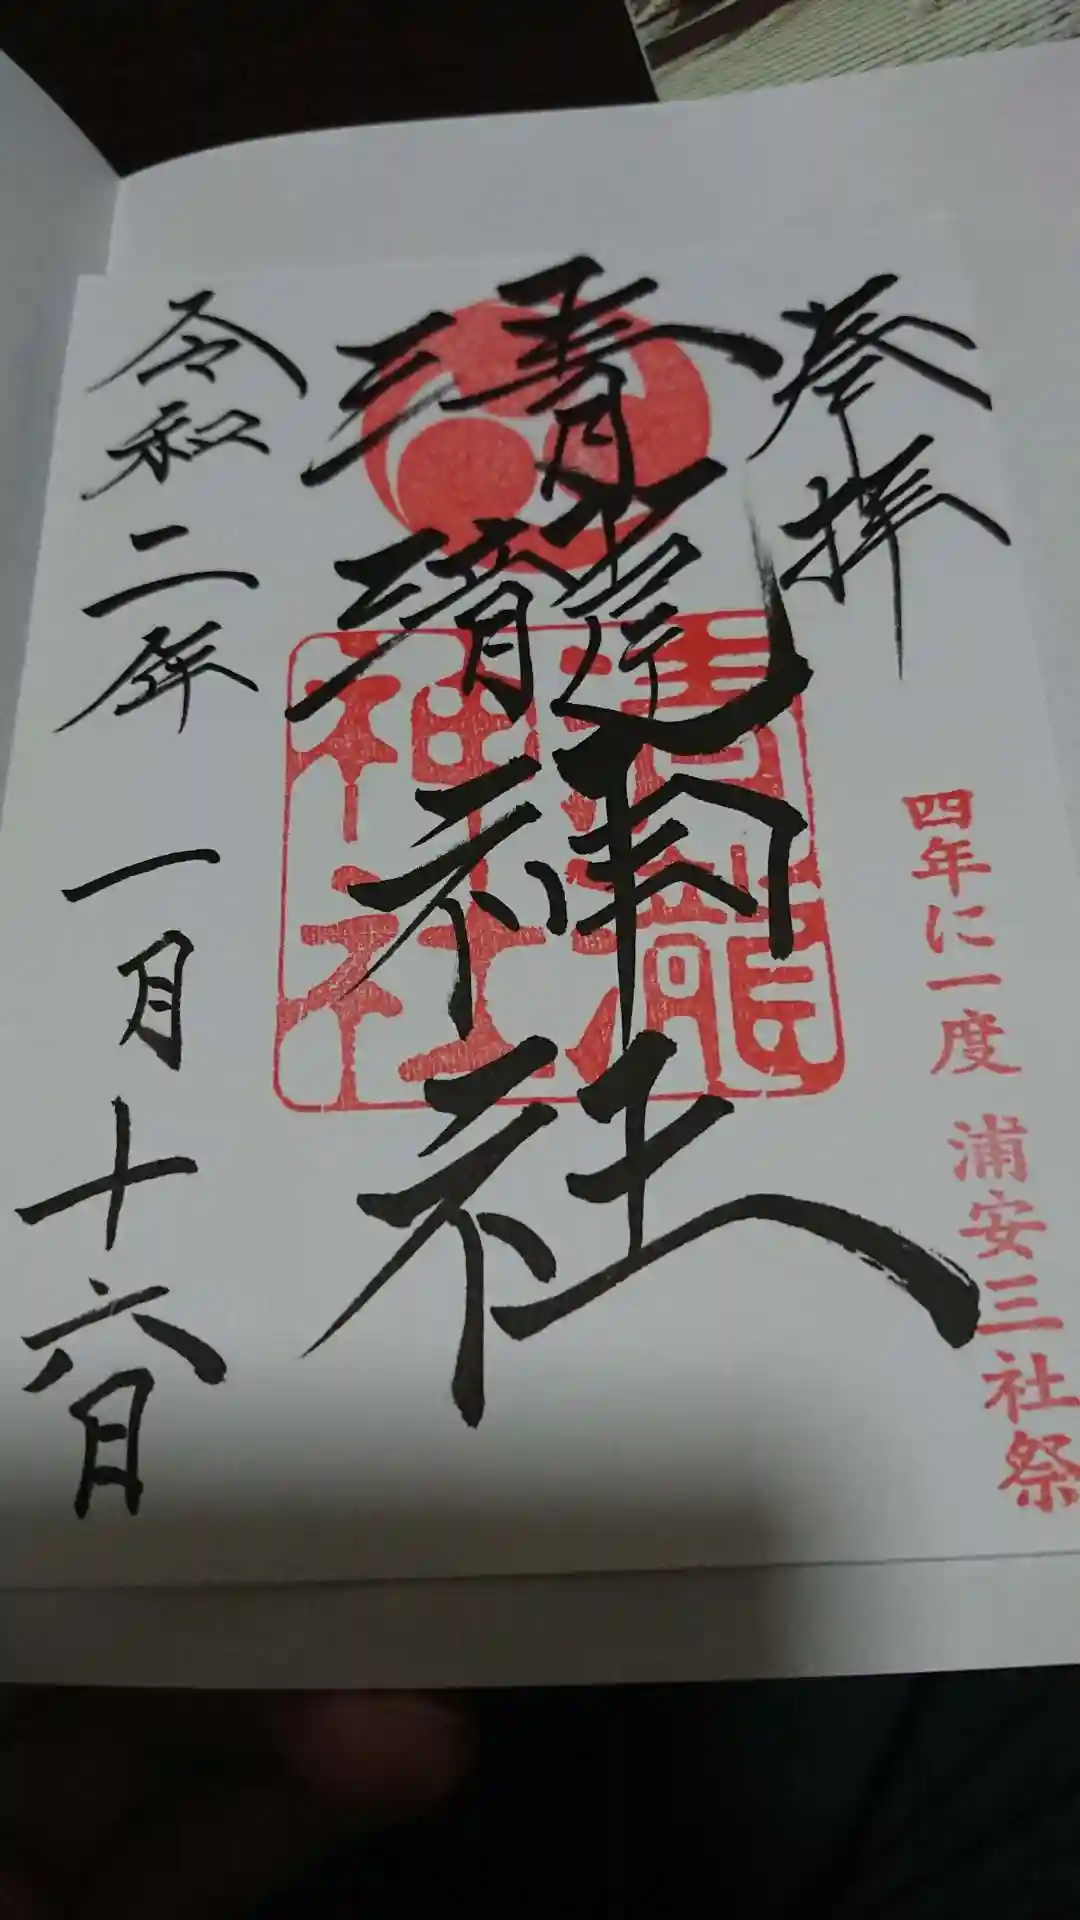 奉拝
四年に一度 浦安三社祭
清瀧神社
清瀧神社
令和二年 一月十六日